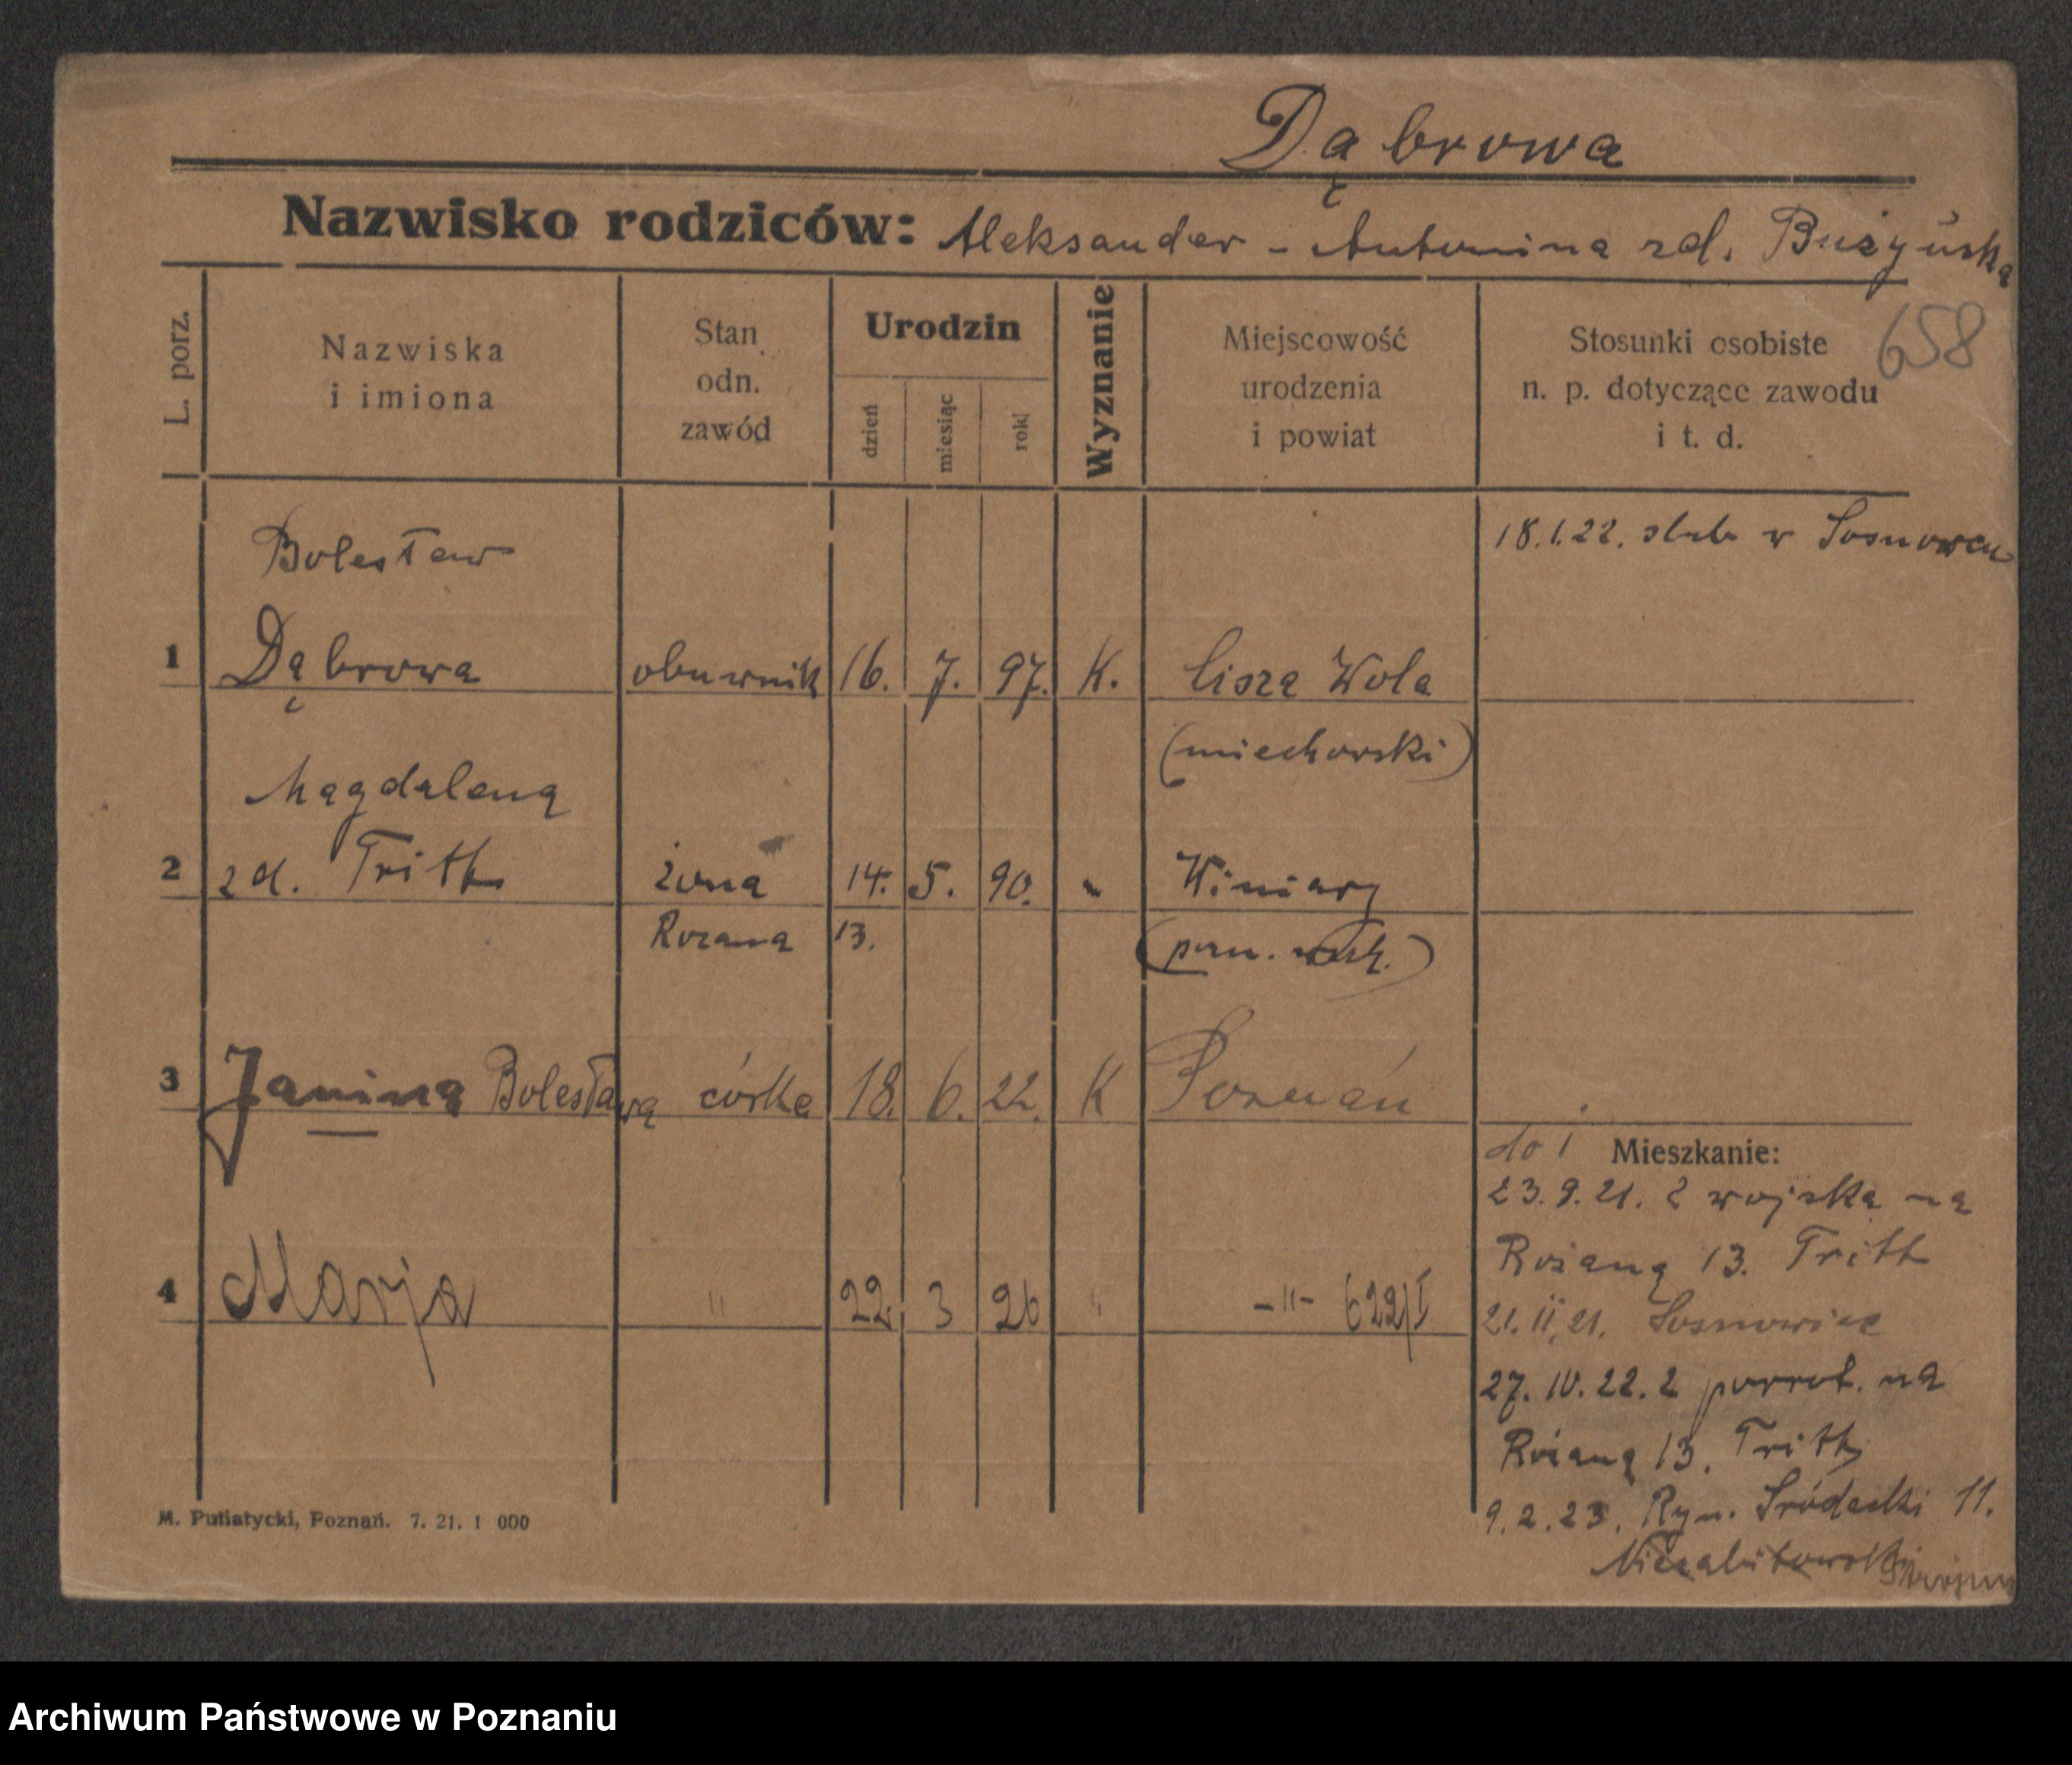 Dąbrowa
Nazwisko rodziców: Aleksander - Antonina zd. Bużyńska
658
L. porz.
Nazwiska i imiona
Stan odn. zawód
Urodzin
dzień
miesiąc
rok
Wyznanie
Miejscowość urodzenia i powiat
Stosunki osobiste n. p. dotyczące zawodu i t. d.
18.1.22. slub w Sosnowcu
Bolesław
1 Dąbrowa obuwnik 16. 7. 97. K. Lisza Wola
(miechowski)
Magdalena
2 zd. Trith żona 14. 5. 90. " Winiary
Rozana 13. (pozn.
3 Janina Bolesława córka 18. 6. 22. K Poznań
do 1 Mieszkanie:
23.9.21. z wojska na
Rożaną 13. Tritt
4 Marja " 22. 3 26 " -"- 622/I
21.11.21. Sosnowiec
27.10.22. z powrot. na
Rożaną 13. Trith
9.2.23. Ryn. Śródecki 11.
Niezabitowski
M. Putiatycki, Poznań. 7. 21. 1 000
Archiwum Państwowe w Poznaniu